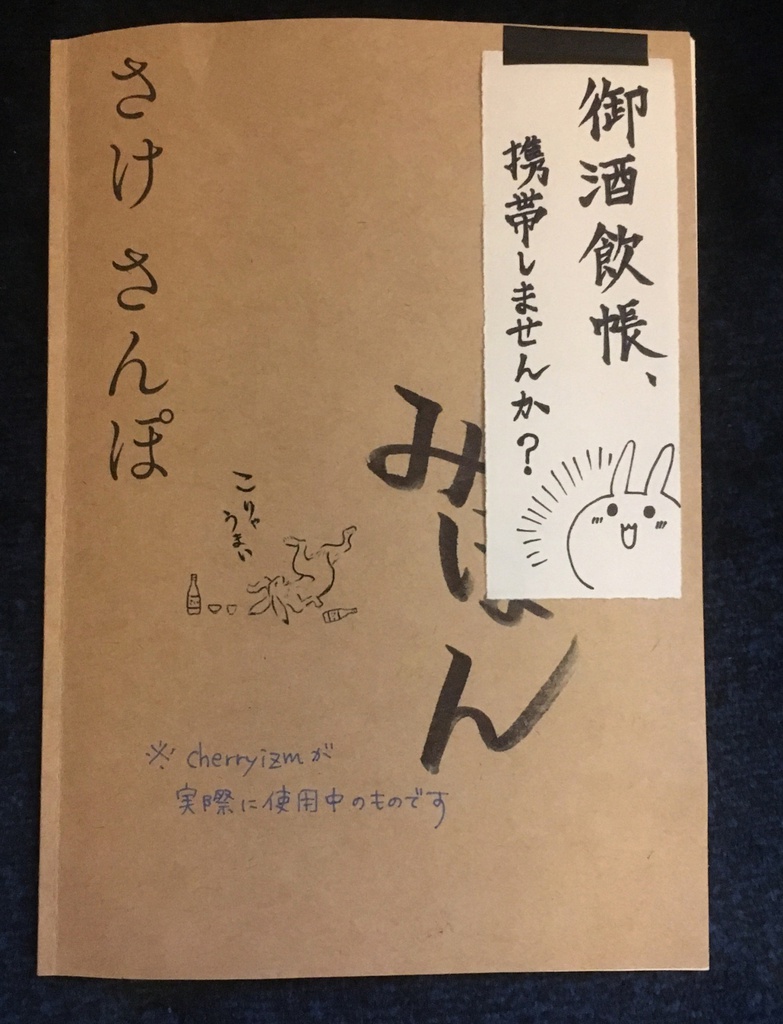 御酒飲帳、
携帯しませんか？
さけ さんぽ
みほん
こりゃ
うまい
※ cherryizmが
実際に使用中のものです